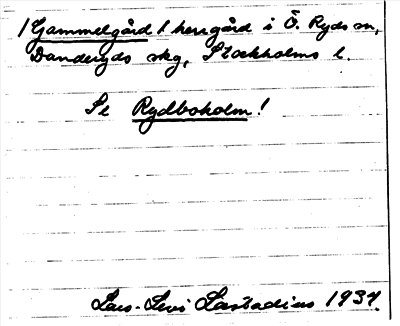 /Gammelgård/ herrgård i Ö. Ryds sn,
Danderyds skg, Stockholms l.
Se Rydboholm!
Lars-Levi Læstadius 1937.